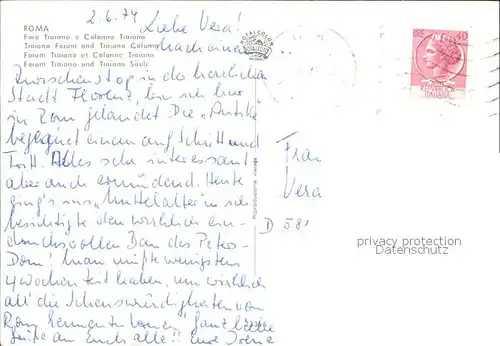 ROMA
Foro Traiano e Colonna Traiana
Traiano Forum and Traiana Column
Forum Traiano et Colonne Traiana
Traiano Forum und Traiana Säule
2.6.74
Liebe Vera!
Nach einem
Zwischenstop in der herrlichen
Stadt Florenz, bin ich hier
in Rom gelandet. Die "Antike"
begegnet einem auf Schritt und
Tritt. Alles sehr interessant
aber auch ermüdend. Heute
ging's ins "Mittelalter" ich
besichtigte den wirklich ein-
drucksvollen Bau des Peters-
Dom! Man müßte wenigstens
4 Wochen Zeit haben, um wirklich
all' die Sehenswürdigkeiten von
Rom kennenzulernen. Ganz liebe
Grüße an Euch alle!! Eure Irene
ROTALCOLOR
ROTALFOTO
LIRE 40
REPUBBLICA
ITALIANA
Riproduzione vietata
Frau
Vera
D 581
privacy protection
Datenschutz